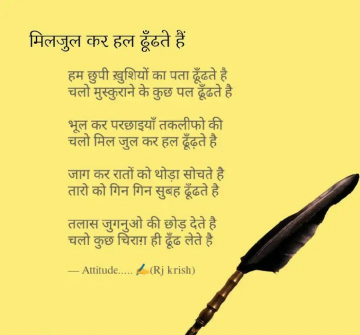 मिलजुल कर हल ढूँढते हैं
हम छुपी ख़ुशियों का पता ढूँढते है
चलो मुस्कुराने के कुछ पल ढूँढते है
भूल कर परछाइयाँ तकलीफो की
चलो मिल जुल कर हल ढूँढ़ते है
जाग कर रातों को थोड़ा सोचते है
तारो को गिन गिन सुबह ढूँढते है
तलास जुगनुओ की छोड़ देते है
चलो कुछ चिराग़ ही ढूँढ लेते है
— Attitude..... ✍(Rj krish)